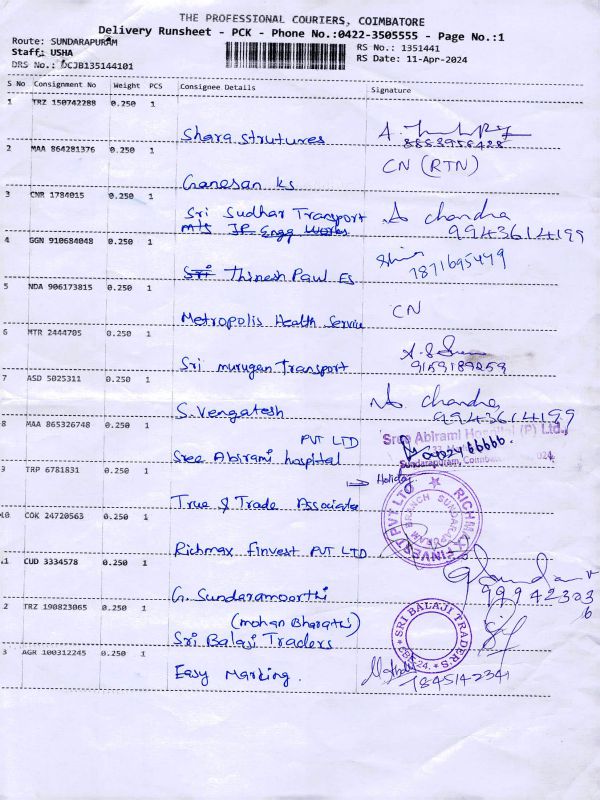 THE PROFESSIONAL COURIERS, COIMBATORE
Delivery Runsheet - PCK - Phone No.:0422-3505555 - Page No.:1
Route: SUNDARAPURAM
RS No.: 1351441
Staff: USHA
RS Date: 11-Apr-2024
DRS No.: DCJB135144101
S No Consignment No Weight PCS Consignee Details Signature
1 TRZ 150742288 0.250 1
Shara strutures
2 MAA 864281376 0.250 1
CN (RTN)
Ganesan ks
3 CNR 1784015 0.250 1
Sri Sudhar Transport
chandra
M/s JP Engg Works
9943614199
4 GGN 910684048 0.250 1
Sri Thinesh Paul Es
7871695479
5 NDA 906173815 0.250 1
CN
Metropolis Health Service
6 MTR 2444705 0.250 1
Sri murugan Transport
9159189259
7 ASD 5025311 0.250 1
S. Vengatesh
chandra
9943614199
8 MAA 865326748 0.250 1
PVT LTD
Sree Abirami Hospital (P) Ltd.,
Sree Abirami hospital
Sundarapuram,
9 TRP 6781831 0.250 1
Holiday
True & Trade Associate
10. COK 24720563 0.250 1
RICHMAX FINVEST PVT LTD
BRANCH SUNDARAPURAM
Richmax Finvest PVT LTD
.1 CUD 3334578 0.250 1
G. Sundaramoorthi
999423036
.2 TRZ 190823065 0.250 1
(mohan Bharatis)
SRI BALAJI TRADERS
Sri Balaji Traders
3 AGR 100312245 0.250 1
Easy Marking.
7845142341